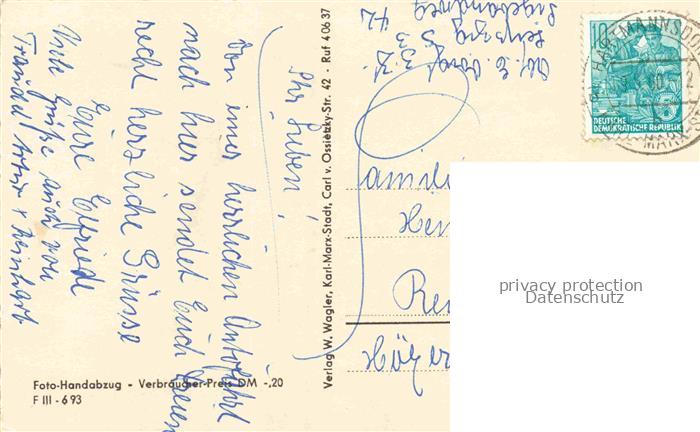 Ihr Lieben!
Von einer herrlichen Autofahrt
nach hier sendet Euch lieben
recht herzliche Grüsse
Eure Elfriede
Viele Grüße auch von
Traudel Artur + Reinhart
Foto-Handabzug - Verbraucher-Preis DM -,20
F III - 6 93
Verlag W. Wagler, Karl-Marx-Stadt, Carl v. Ossietzky-Str. 42 - Ruf 4 06 37
Abs. E.
Leipzig S 3
42
10
DEUTSCHE
DEMOKRATISCHE REPUBLIK
HARTMANNSDO
amili
Hen
Re
privacy protection
Datenschutz